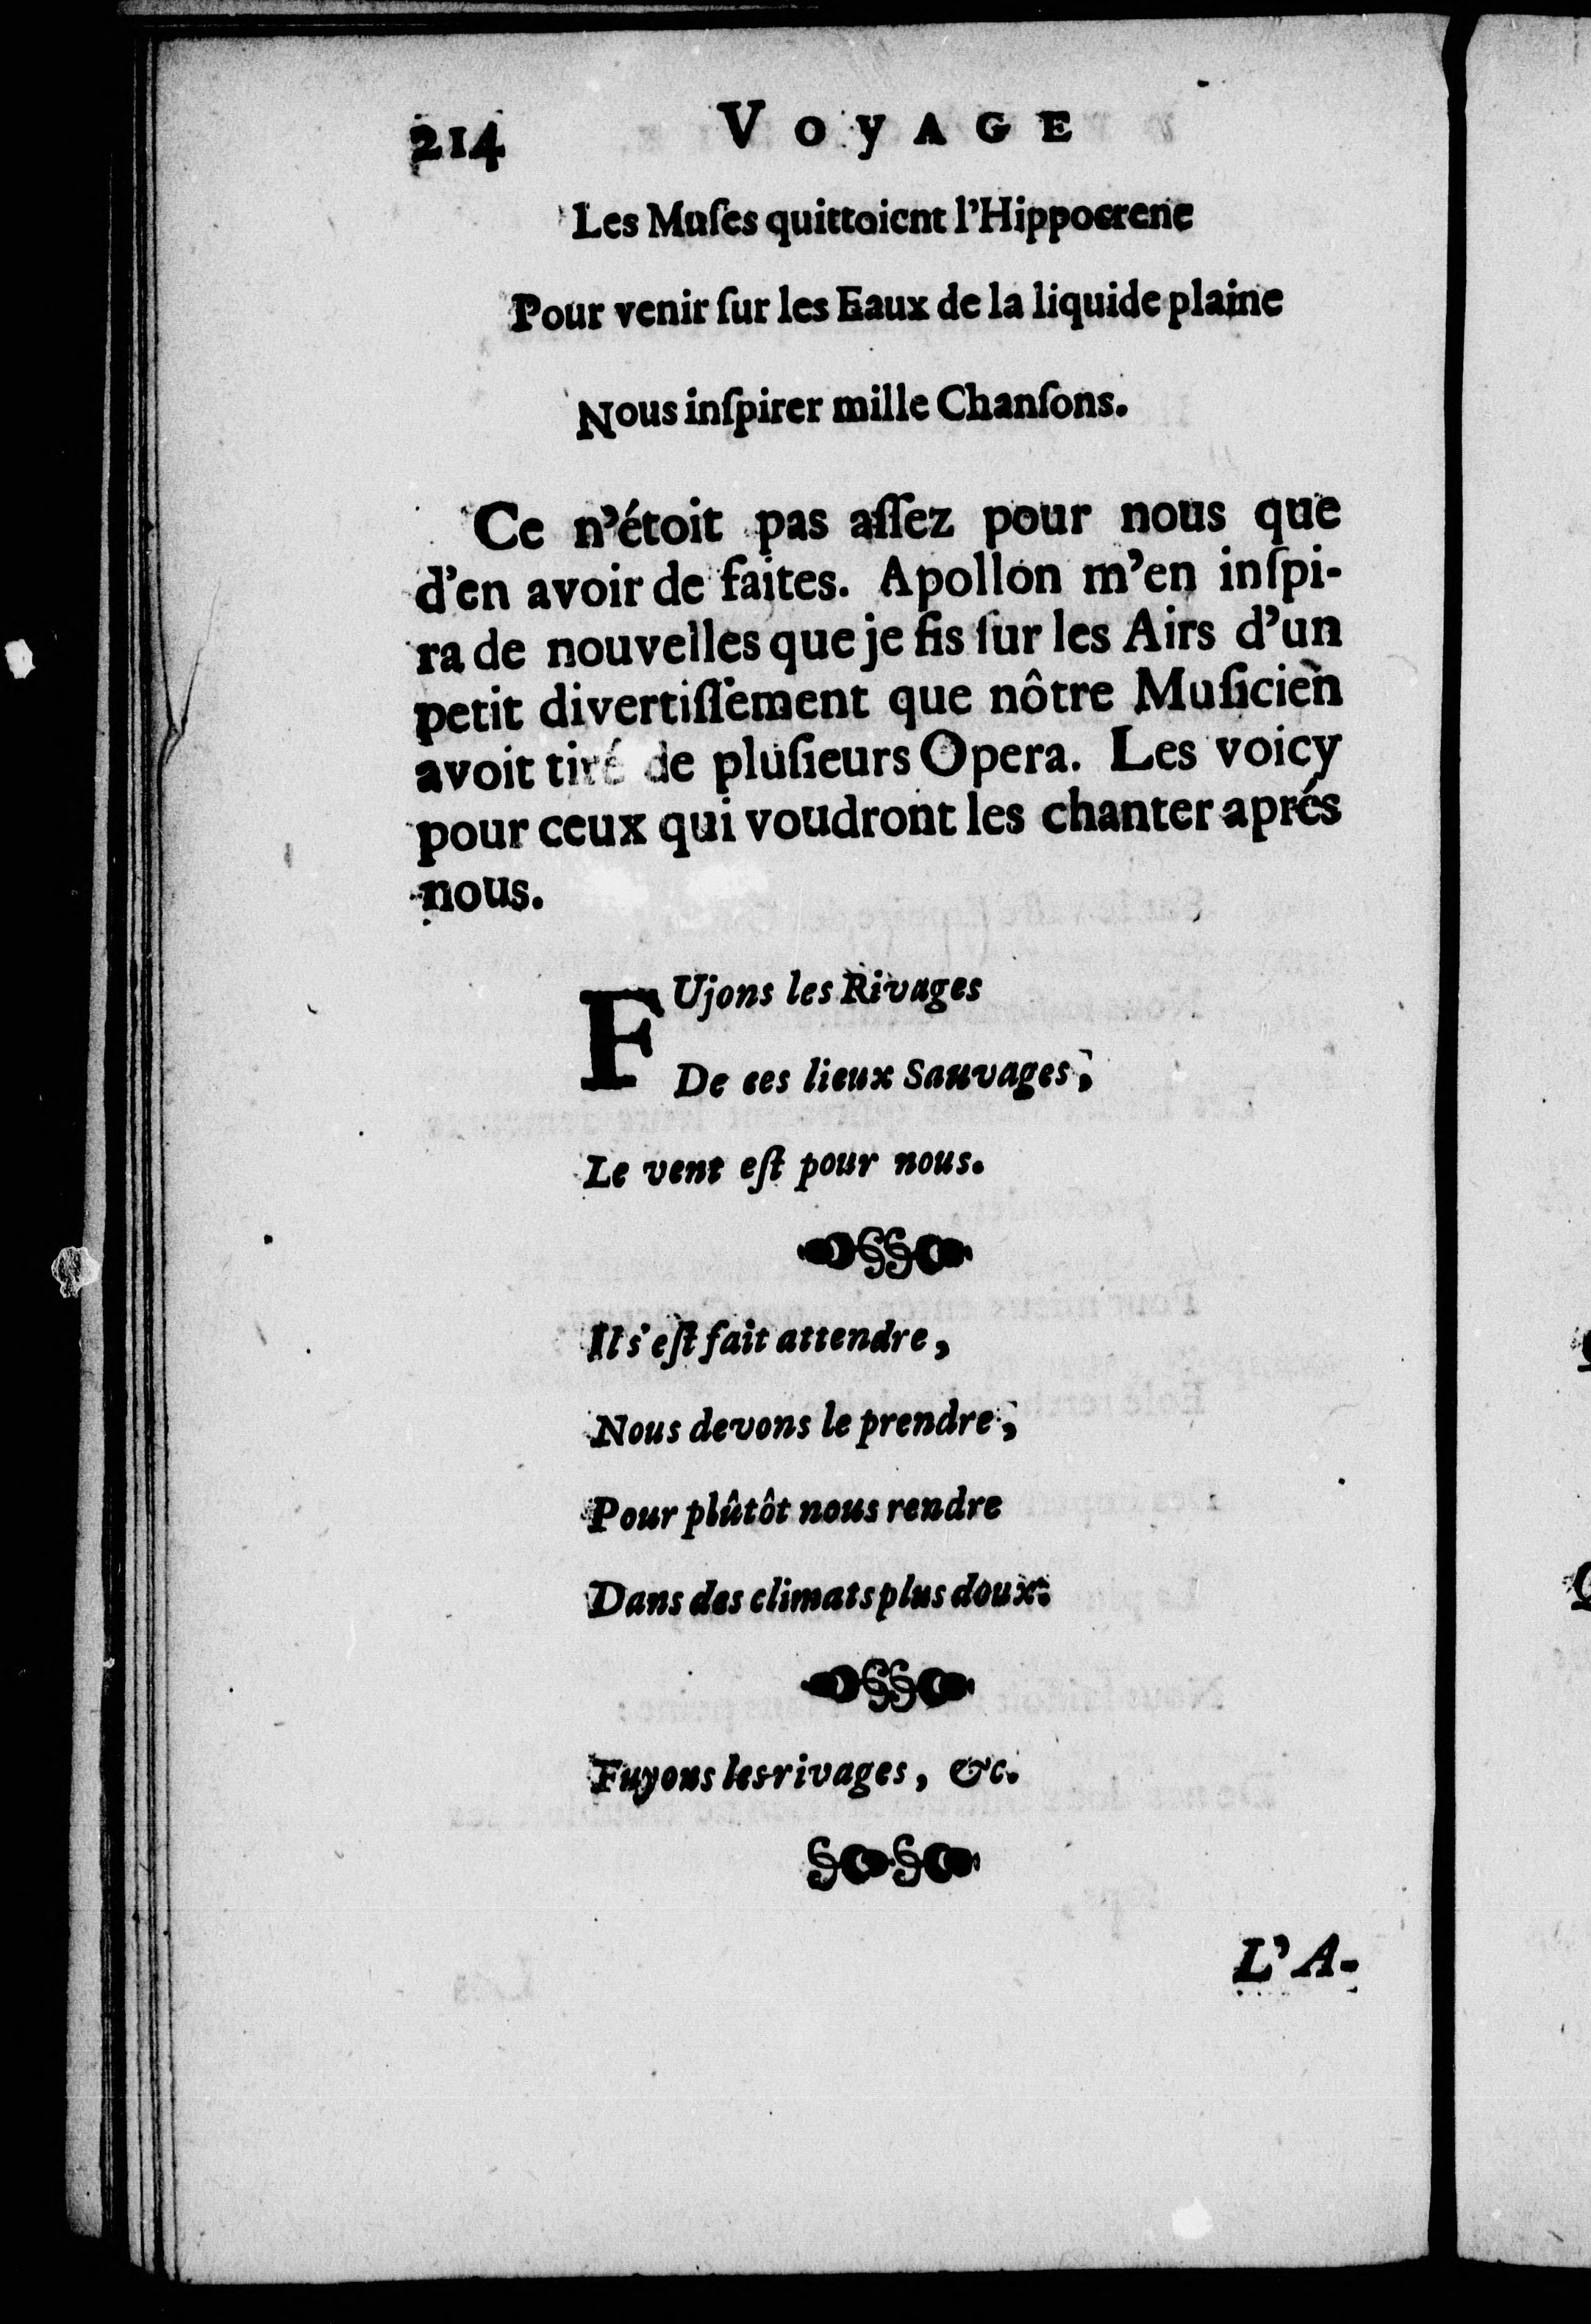 214 VOYAGE
Les Muſes quittoient l'Hippocrene
Pour venir ſur les Eaux de la liquide plaine
Nous inſpirer mille Chanſons.
Ce n'étoit pas aſſez pour nous que
d'en avoir de faites. Apollon m'en inſpi-
ra de nouvelles que je fis ſur les Airs d'un
petit divertiſſement que nôtre Muſicien
avoit tiré de pluſieurs Opera. Les voicy
pour ceux qui voudront les chanter aprés
nous.
FUjons les Rivages
De ces lieux Sauvages,
Le vent eſt pour nous.
Il s'eſt fait attendre,
Nous devons le prendre,
Pour plûtôt nous rendre
Dans des climats plus doux.
Fuyons les rivages, &c.
L'A-